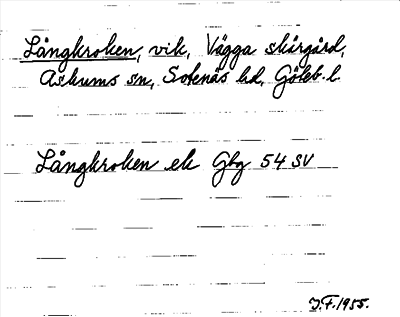 Långkroken, vik, Vägga skärgård,
Askums sn, Sotenäs hd, Göteb. l.
Långkroken ek Gbg 54 SV
J.F. 1955.